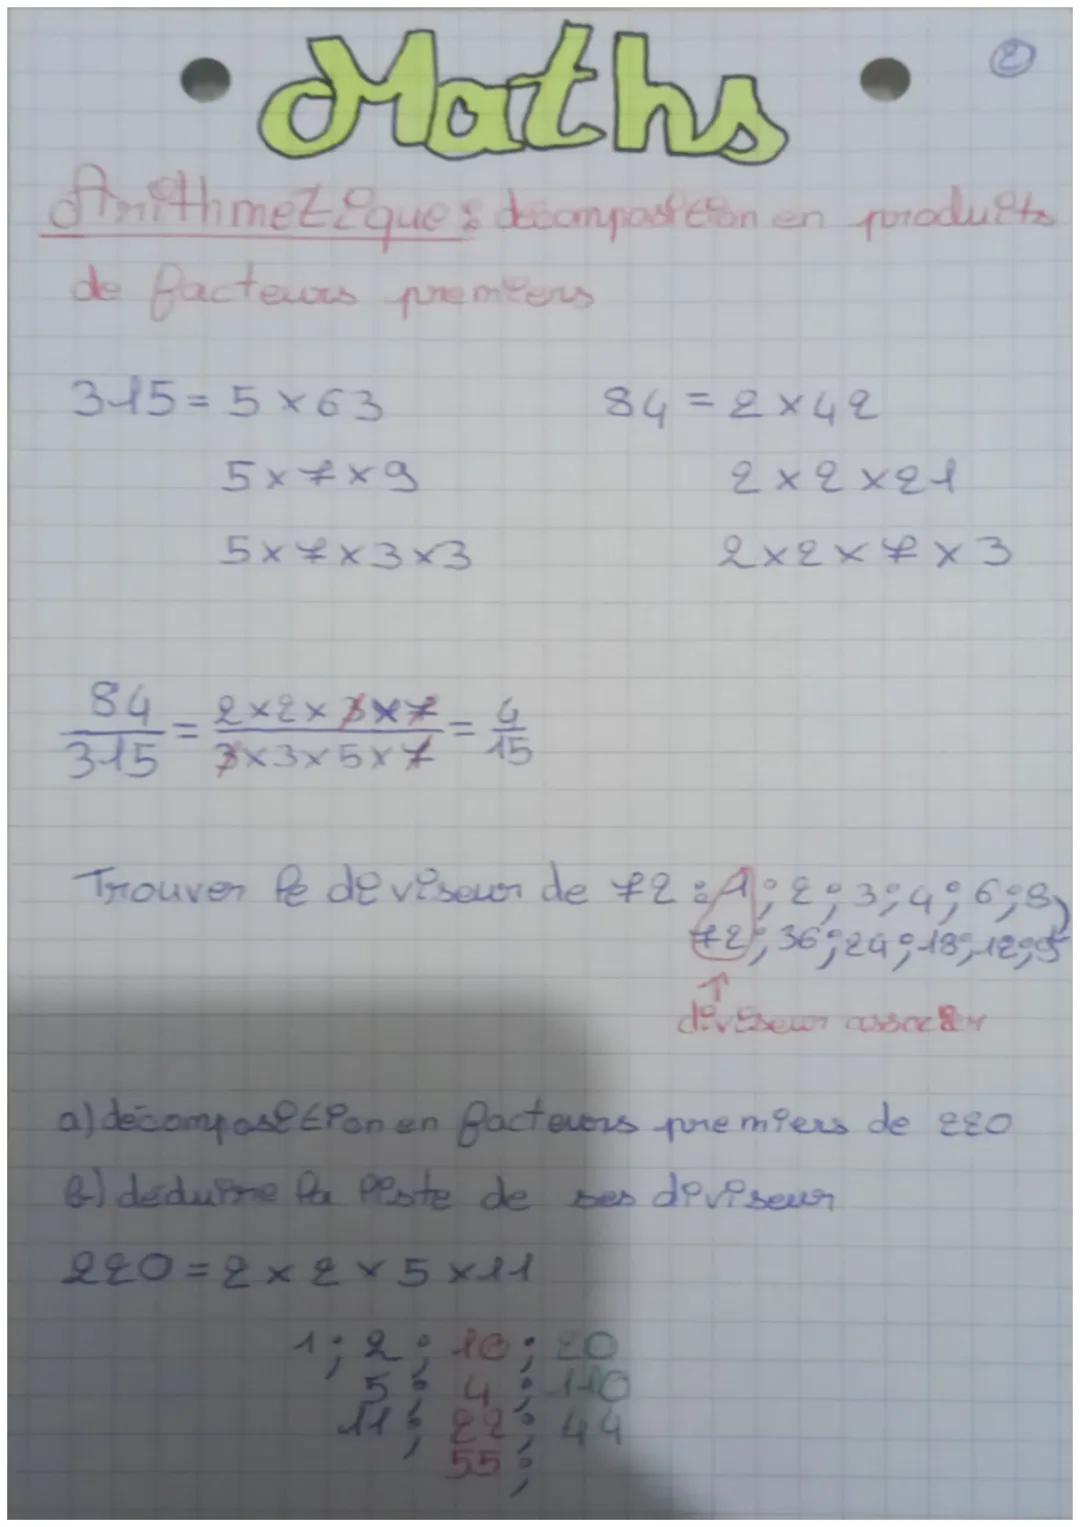 ②
Maths
Arithmetique : décomposition en produits
de facteurs premiers
315 = 5 × 63
5 × 7 × 9
5 × 7 × 3 × 3
84 = 2 × 42
2 × 2 × 21
2 × 2 × 7 × 3
84/315 = 2×2×3×7/3×3×5×7 = 4/15
Trouver le diviseur de 72 : 1 ; 2 ; 3 ; 4 ; 6 ; 8
72 ; 36 ; 24 ; 18 ; 12 ; 9
↑
diviseur associer
a) décomposition en facteurs premiers de 220
b) déduire la liste de ses diviseur
220 = 2 × 2 × 5 × 11
1 ; 2 ; 10 ; 20
5 ; 4 ; 110
11 ; 22 ; 44
55 ;